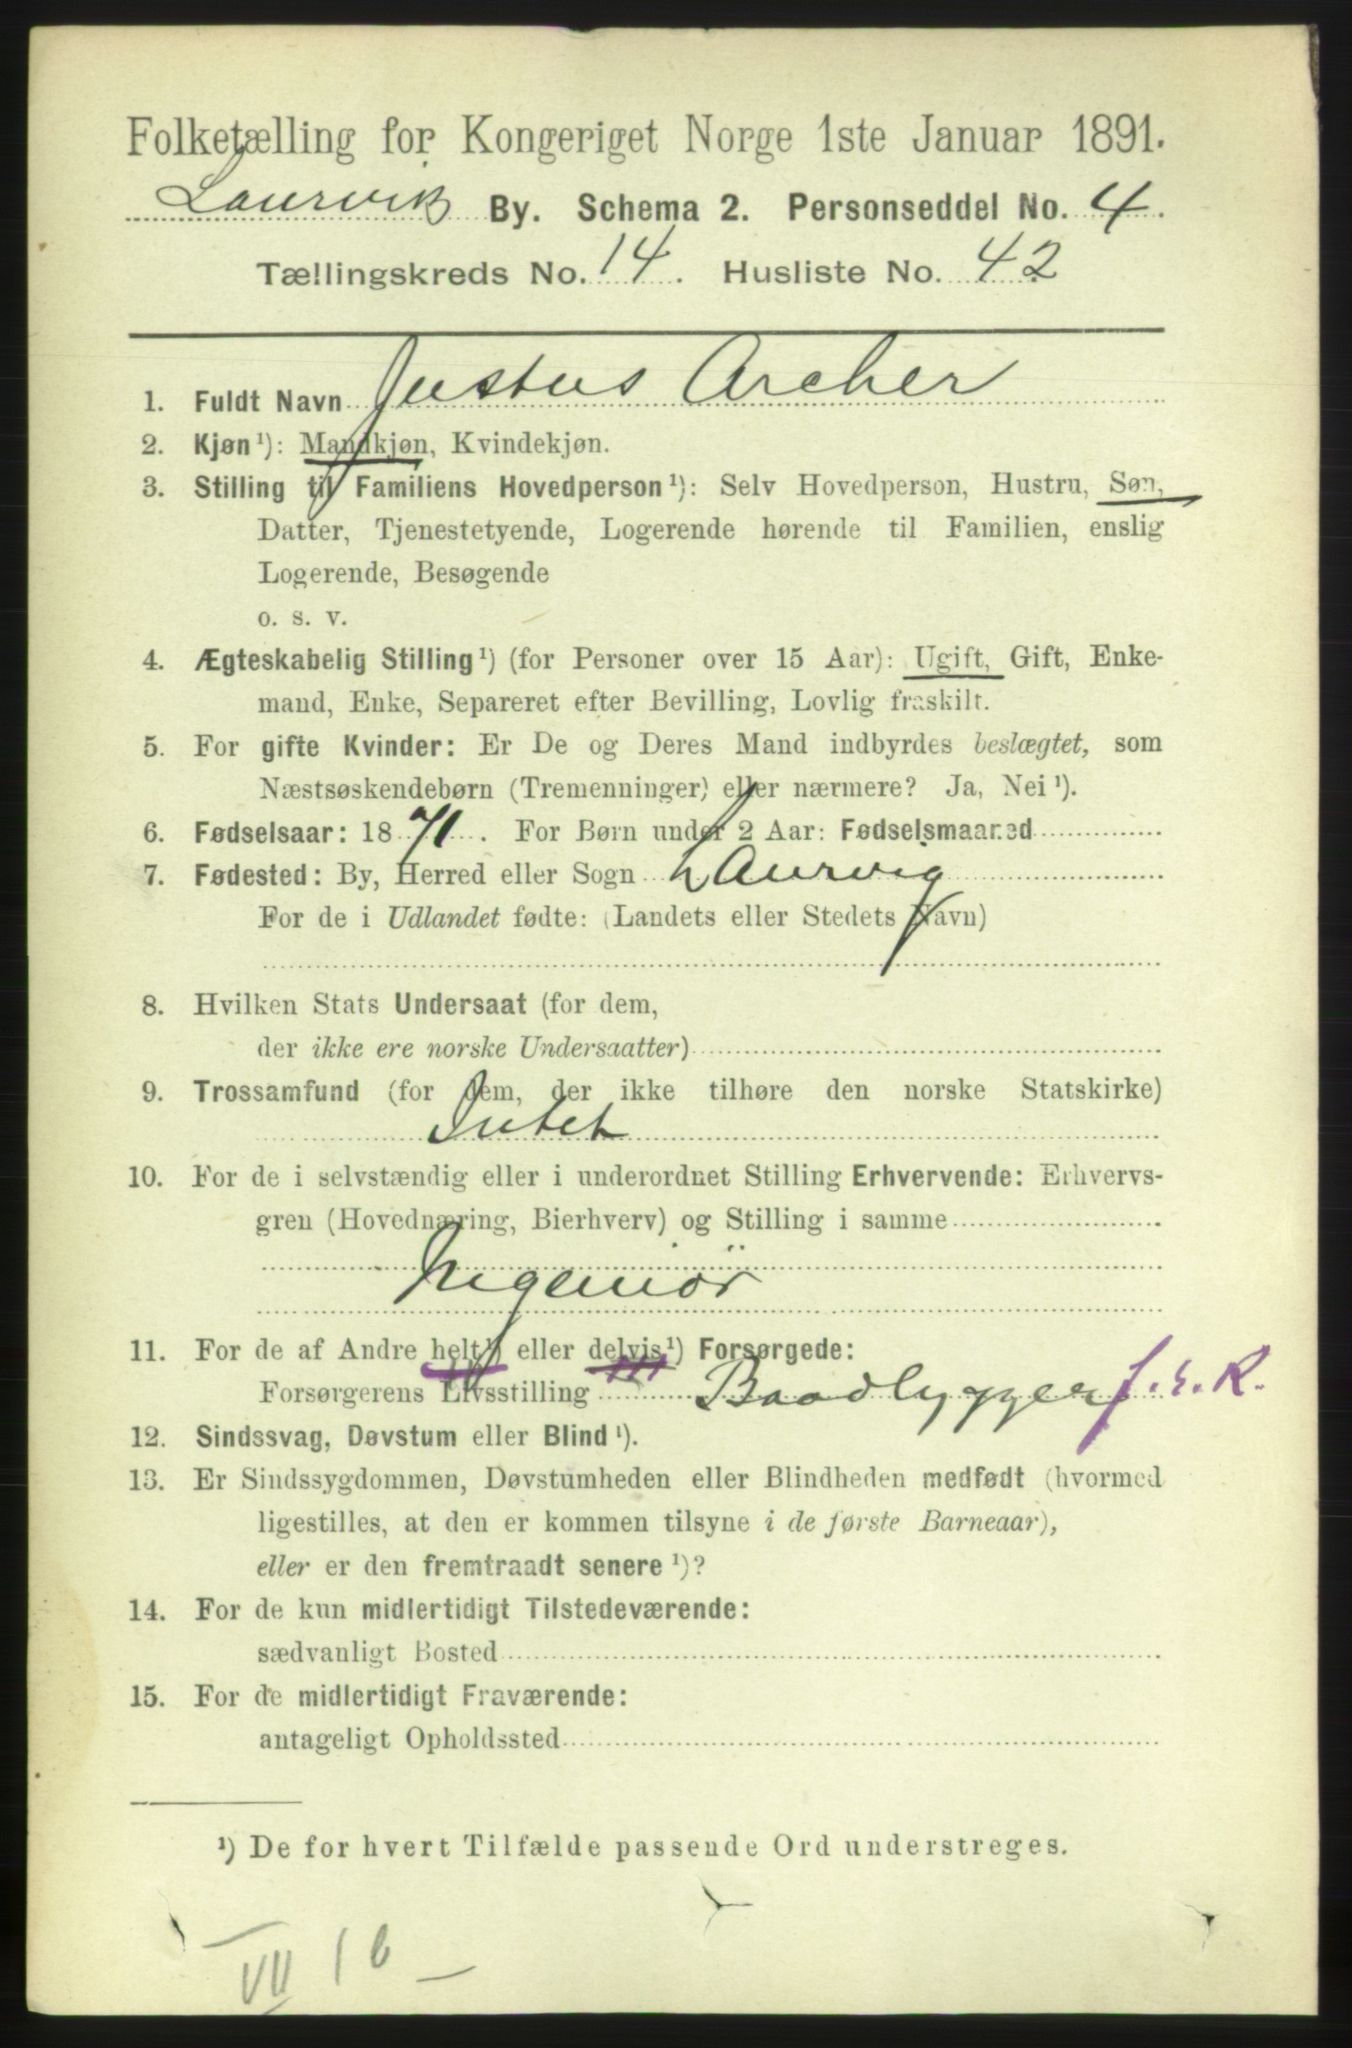 Folketælling for Kongeriget Norge 1ste Januar 1891.
Laurvik By. Schema 2. Personseddel No. 4.
Tællingskreds No. 14. Husliste No. 42
1. Fuldt Navn Justus Archer
2. Kjøn¹): Mandkjøn, Kvindekjøn.
3. Stilling til Familiens Hovedperson¹): Selv Hovedperson, Hustru, Søn,
Datter, Tjenestetyende, Logerende hørende til Familien, enslig
Logerende, Besøgende
o. s. v.
4. Ægteskabelig Stilling¹) (for Personer over 15 Aar): Ugift, Gift, Enke-
mand, Enke, Separeret efter Bevilling, Lovlig fraskilt.
5. For gifte Kvinder: Er De og Deres Mand indbyrdes beslægtet, som
Næstsøskendebørn (Tremenninger) eller nærmere? Ja, Nei¹).
6. Fødselsaar: 1871. For Børn under 2 Aar: Fødselsmaaned
7. Fødested: By, Herred eller Sogn Laurvig
For de i Udlandet fødte: (Landets eller Stedets Navn)
8. Hvilken Stats Undersaat (for dem,
der ikke ere norske Undersaatter)
9. Trossamfund (for dem, der ikke tilhøre den norske Statskirke)
Intet
10. For de i selvstændig eller i underordnet Stilling Erhvervende: Erhvervs-
gren (Hovednæring, Bierhverv) og Stilling i samme
Ingeniør
11. For de af Andre helt¹) eller delvis¹) Forsørgede:
Forsørgerens Livsstilling Baadbygger f. e. R.
12. Sindssvag, Døvstum eller Blind¹).
13. Er Sindssygdommen, Døvstumheden eller Blindheden medfødt (hvormed
ligestilles, at den er kommen tilsyne i de første Barneaar),
eller er den fremtraadt senere¹)?
14. For de kun midlertidigt Tilstedeværende:
sædvanligt Bosted
15. For de midlertidigt Fraværende:
antageligt Opholdssted
¹) De for hvert Tilfælde passende Ord understreges.
VII 16